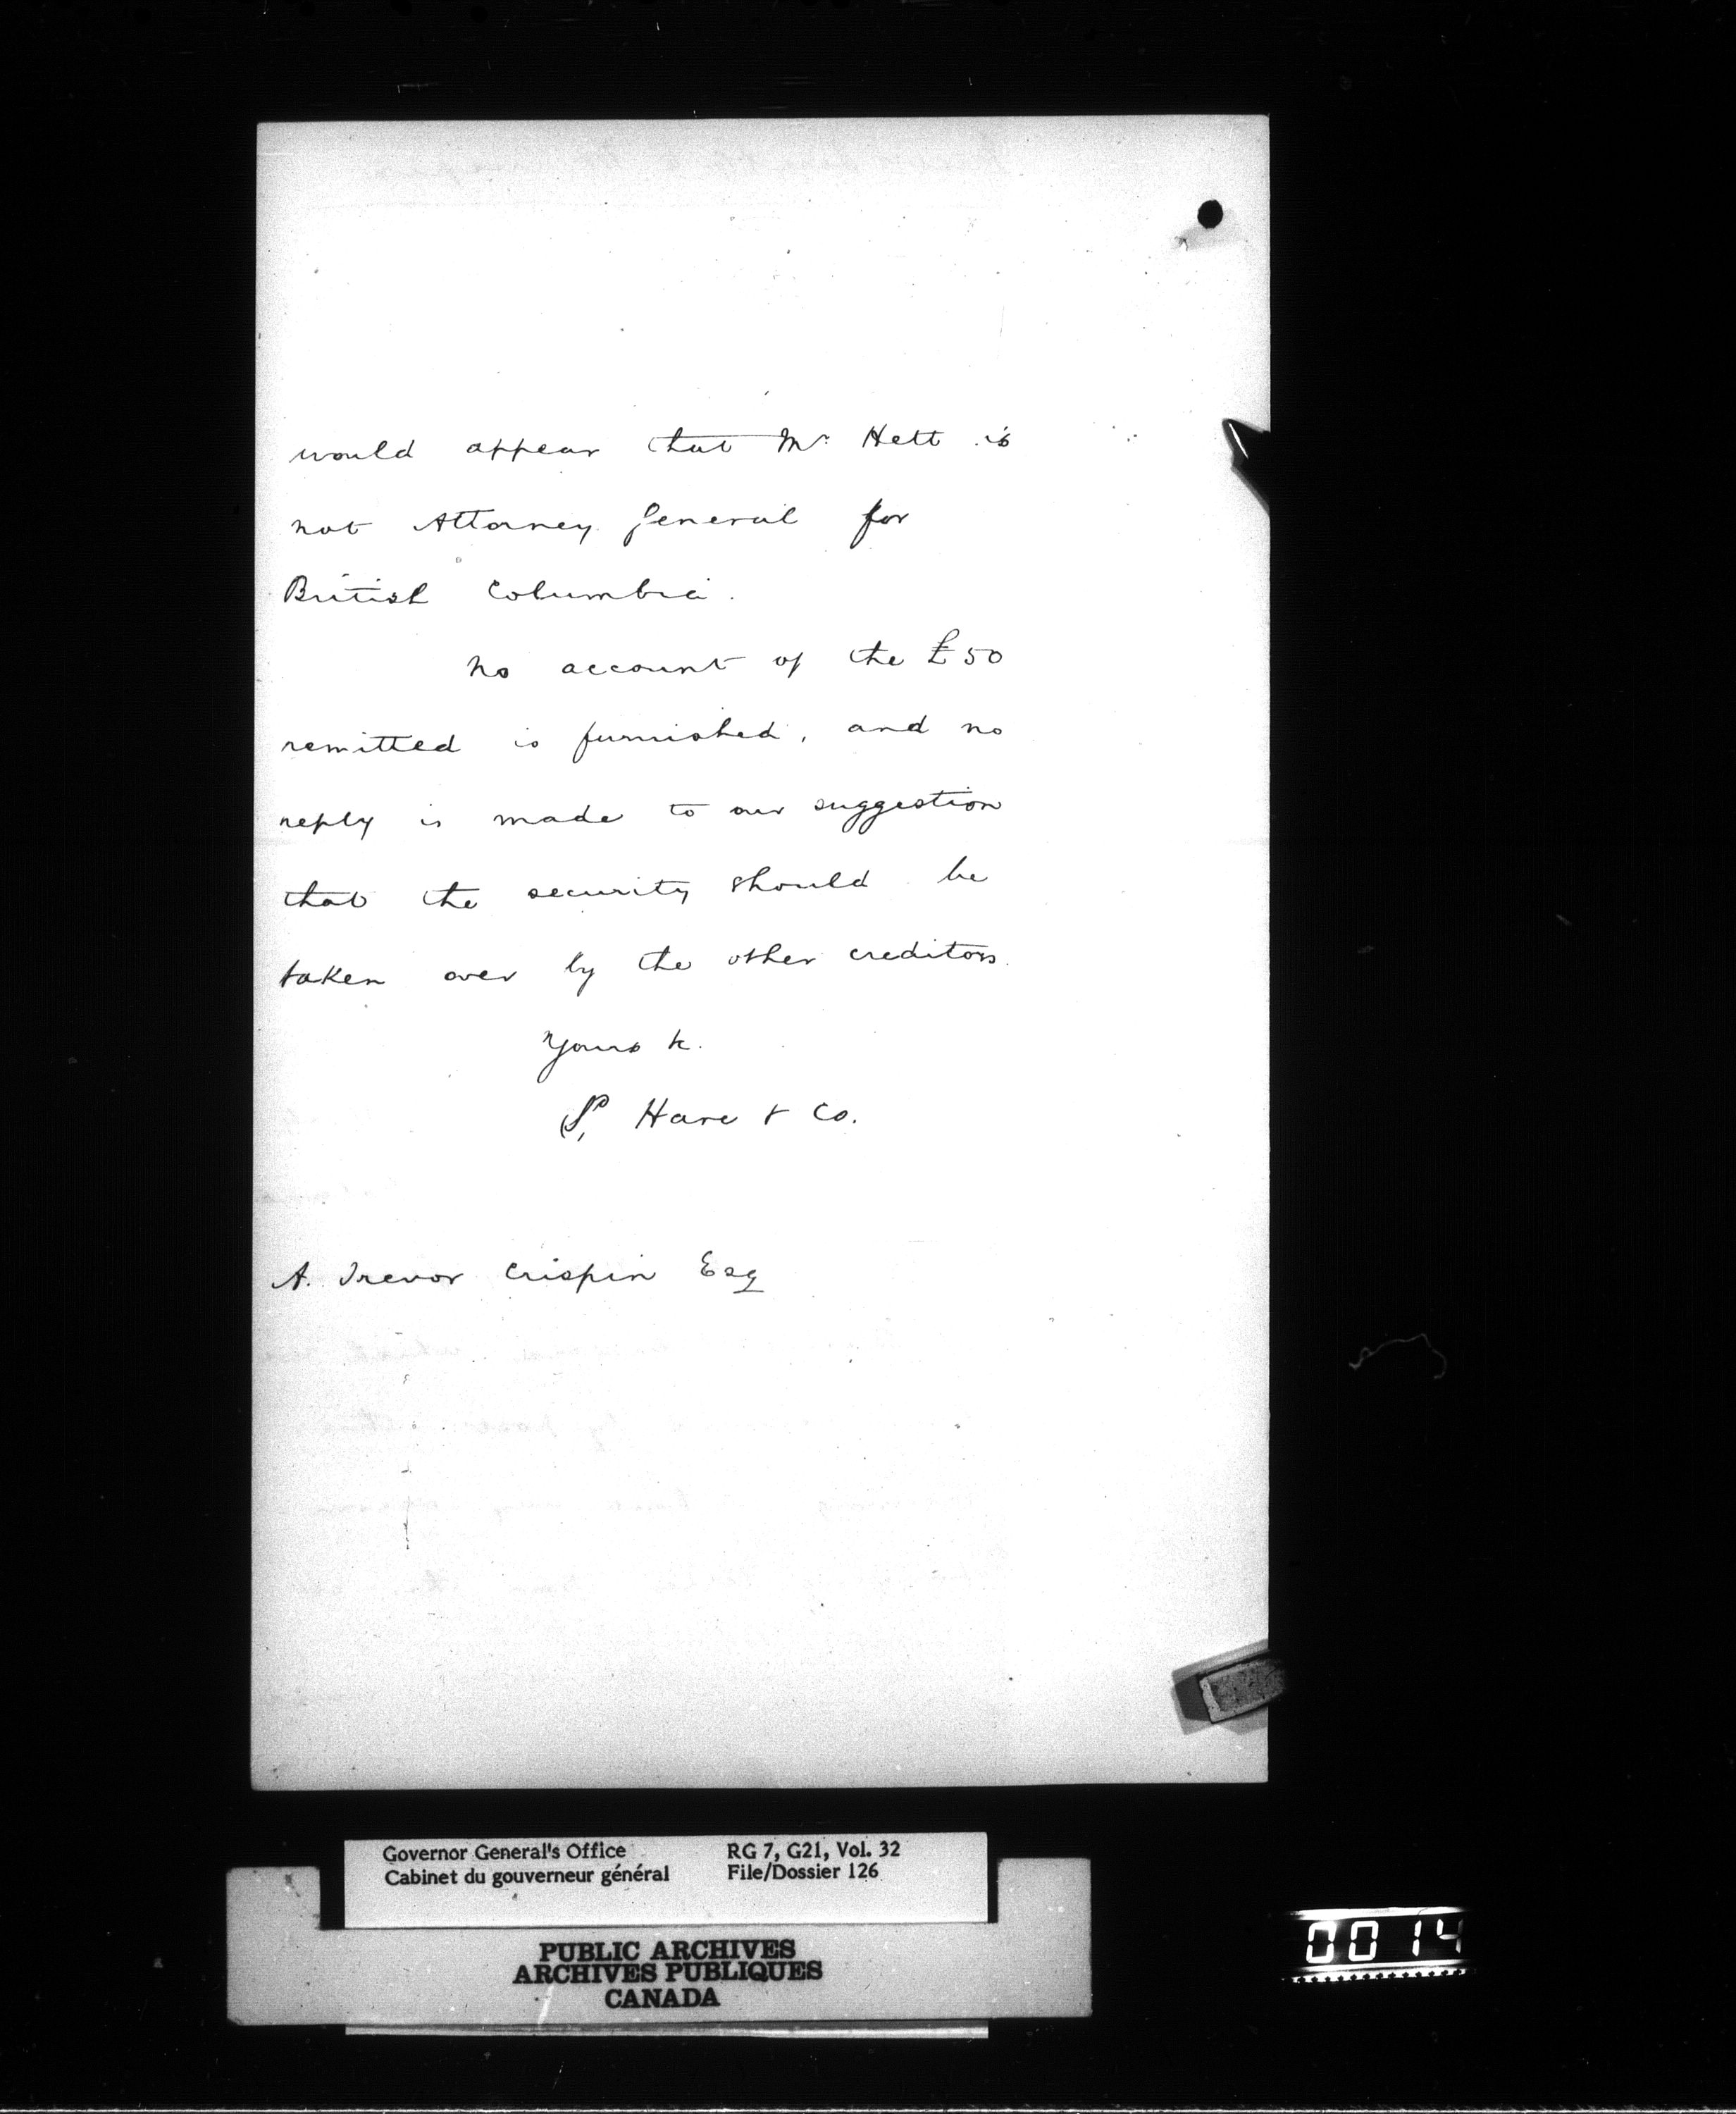 would appear that Mr. Hett is
not Attorney General for
British Columbia.
No account of the £50
remitted is furnished, and no
reply is made to our suggestion
that the security should be
taken over by the other creditors.
Yours &c.
Hare & Co.
A. Trevor Crispin Esq
Governor General's Office RG 7, G21, Vol. 32
Cabinet du gouverneur général File/Dossier 126
PUBLIC ARCHIVES
ARCHIVES PUBLIQUES
CANADA
0014